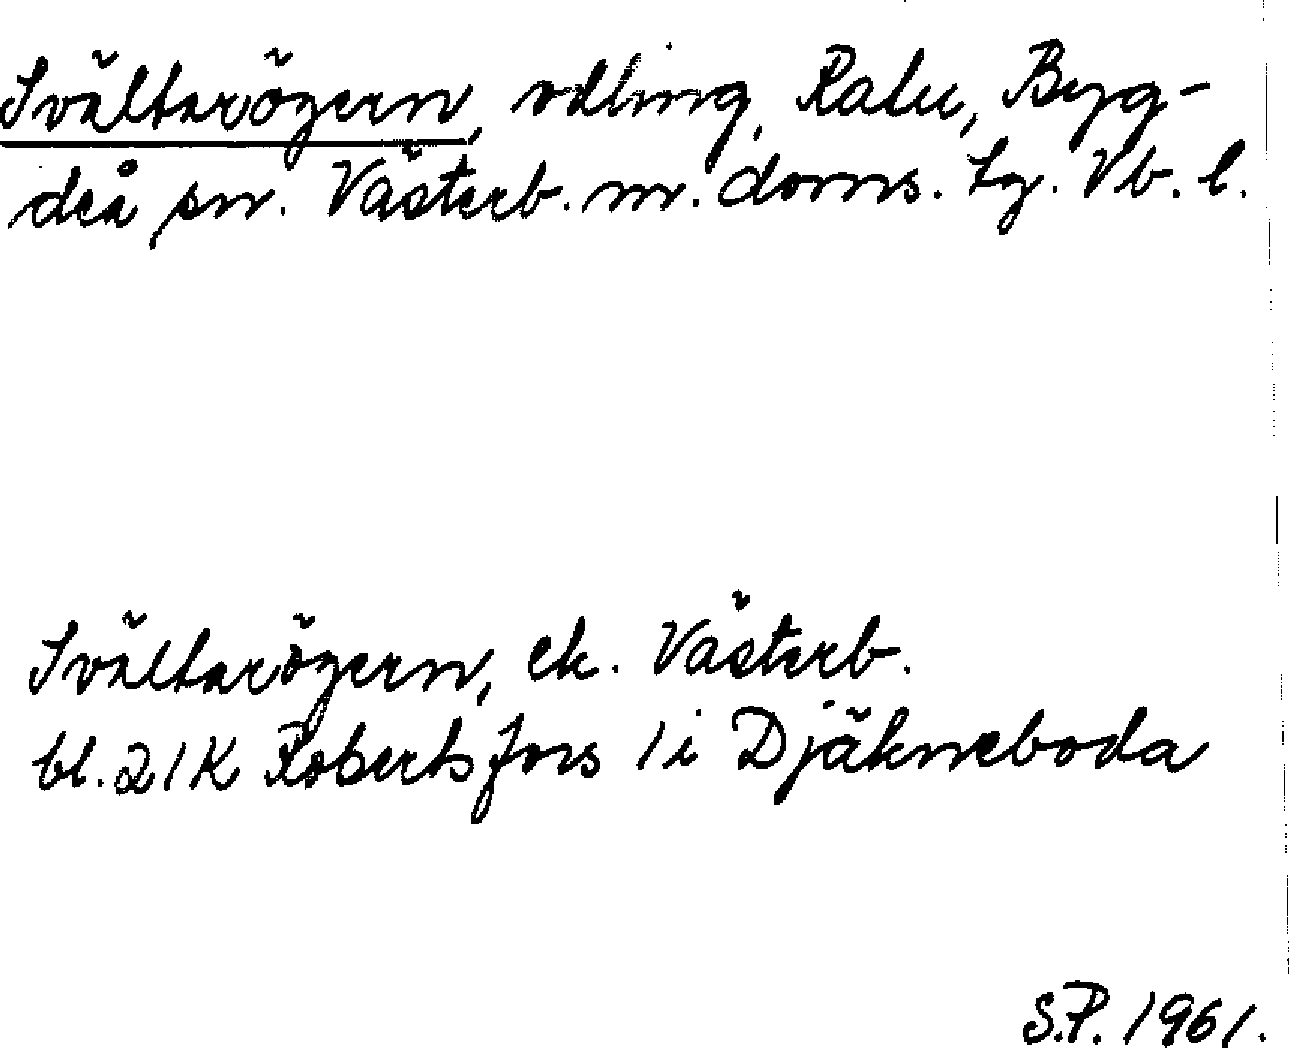 Svältarögern, odling, Ratu, Byg-
deå sn. Västerb. n. doms. tg. Vb. l.
Svältarögern, ek. Västerb.
bl. 21K Robertsfors 1 i Djäkneboda
S.P. 1961.